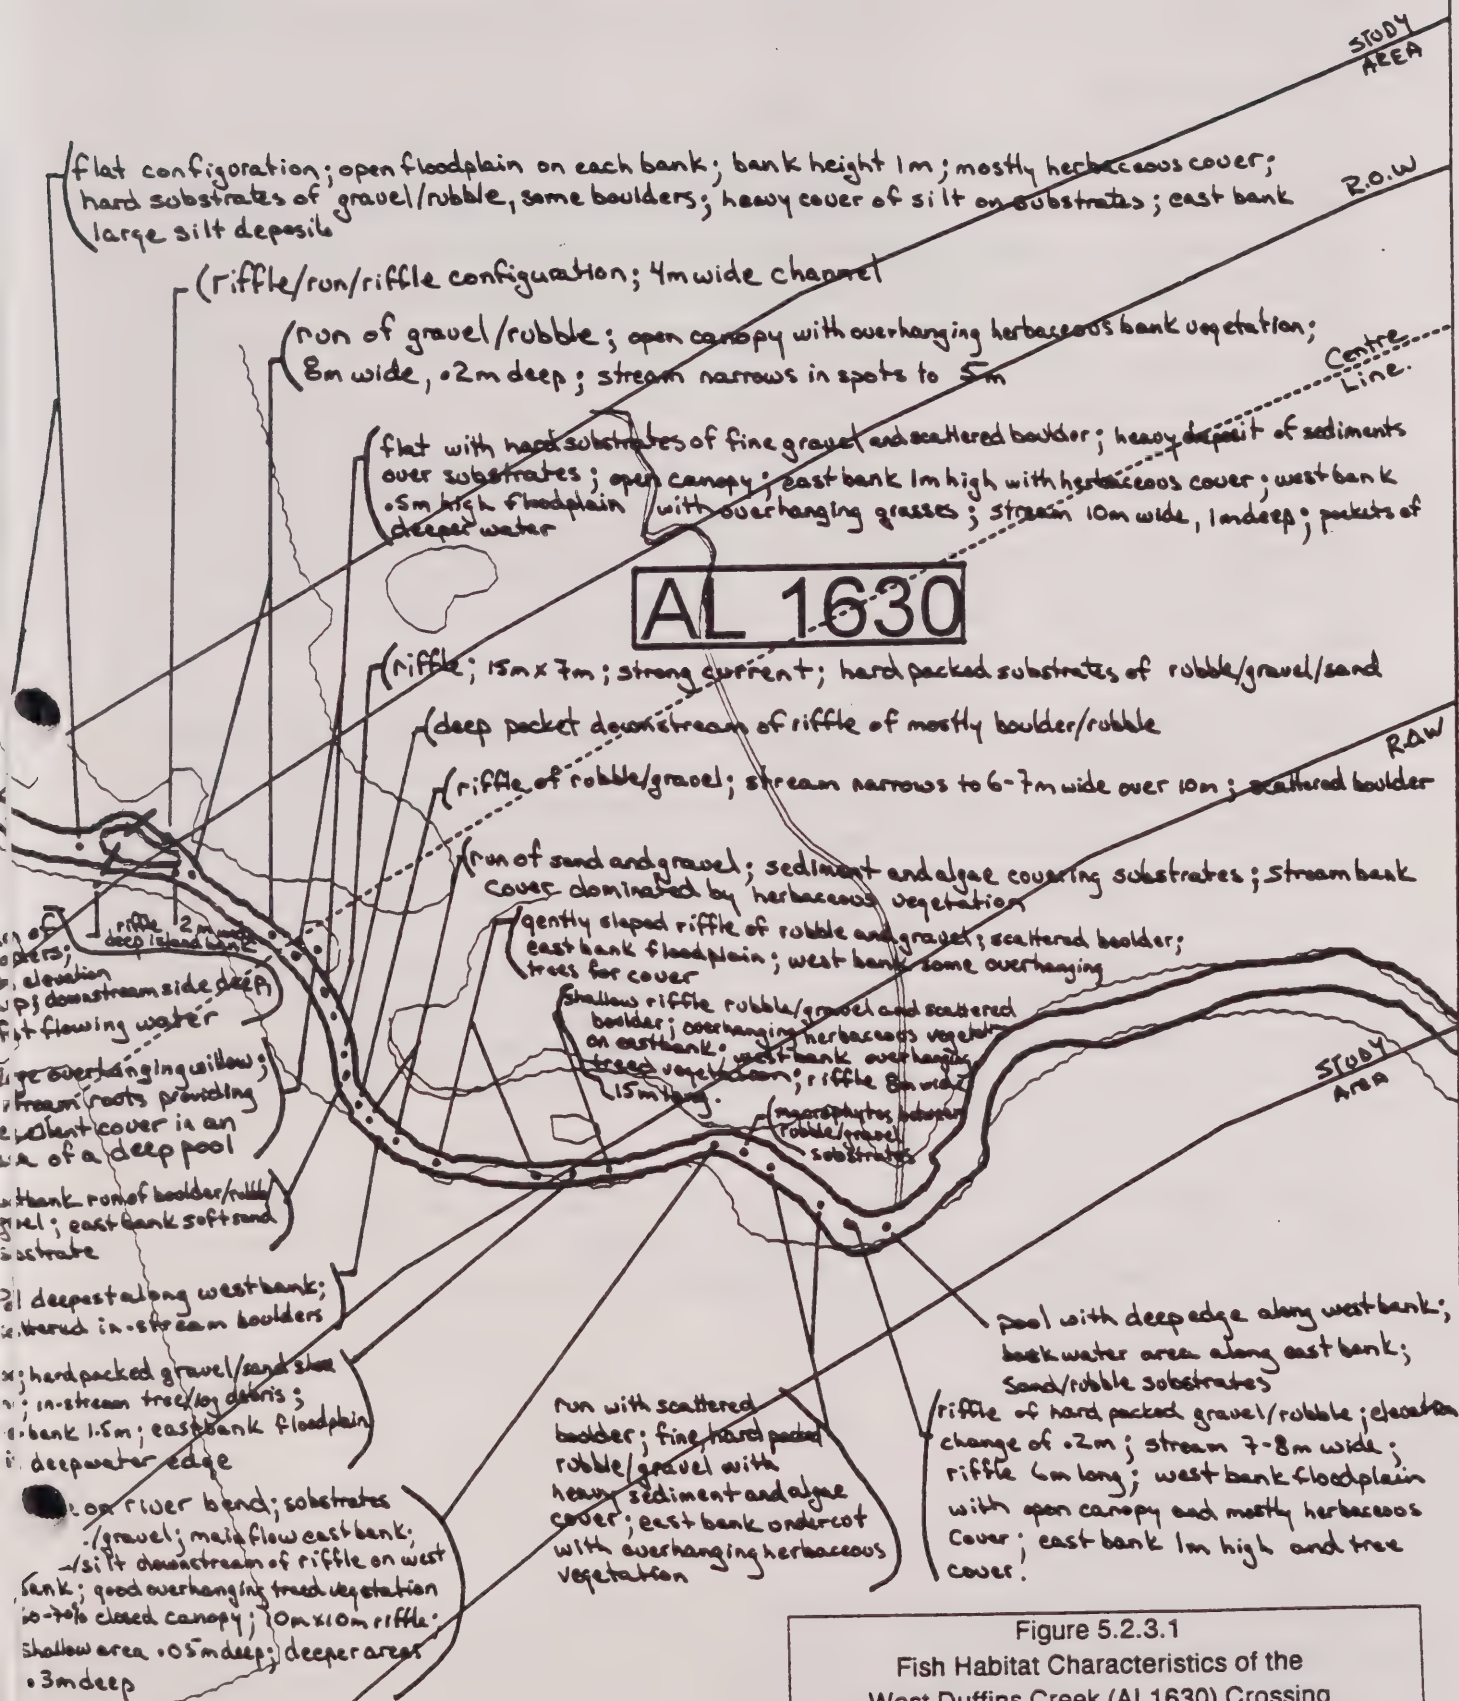 STUDY
AREA
flat configuration; open floodplain on each bank; bank height 1m; mostly herbaceous cover;
hard substrates of gravel/rubble, some boulders; heavy cover of silt on substrates; east bank
large silt deposits
R.O.W
riffle/run/riffle configuration; 4m wide channel
run of gravel/rubble; open canopy with overhanging herbaceous bank vegetation;
8m wide, .2m deep; stream narrows in spots to 5m
Centre
Line.
flat with hard substrates of fine gravel and scattered boulder; heavy deposit of sediments
over substrates; open canopy; east bank 1m high with herbaceous cover; west bank
.5m high floodplain with overhanging grasses; stream 10m wide, 1m deep; pockets of
deeper water
AL 1630
riffle; 15m x 7m; strong current; hard packed substrates of rubble/gravel/sand
deep pocket downstream of riffle of mostly boulder/rubble
R.O.W
riffle of rubble/gravel; stream narrows to 6-7m wide over 10m; scattered boulder
run of sand and gravel; sediment and algae covering substrates; stream bank
cover dominated by herbaceous vegetation
gently sloped riffle of rubble and gravel; scattered boulder;
east bank floodplain; west bank some overhanging
trees for cover
shallow riffle rubble/gravel and scattered
boulder; overhanging herbaceous
on east bank; west bank overhanging
treed vegetation; riffle 8m wide
15m long.
macrophytes between
rubble/gravel
substrates
STUDY
AREA
riffle 2m
deep island bank
of
elevation
downstream side deep,
flowing water
overhanging willow;
roots providing
cover in an
of a deep pool
bank run of boulder/rubble
east bank soft sand
deepest along west bank;
in-stream boulders
hard packed gravel/sand
in-stream tree/log debris;
bank 1.5m; east bank floodplain
deepwater edge
on river bend; substrates
/gravel; main flow east bank;
/silt downstream of riffle on west
bank; good overhanging treed vegetation
60-70% closed canopy; 10m x 10m riffle;
shallow area .05m deep; deeper areas
.3m deep
run with scattered
boulder; fine, hard packed
rubble/gravel with
heavy sediment and algae
cover; east bank undercut
with overhanging herbaceous
vegetation
pool with deep edge along west bank;
backwater area along east bank;
sand/rubble substrates
riffle of hard packed gravel/rubble; elevation
change of .2m; stream 7-8m wide;
riffle 6m long; west bank floodplain
with open canopy and mostly herbaceous
cover; east bank 1m high and tree
cover.
Figure 5.2.3.1
Fish Habitat Characteristics of the
West Duffins Creek (AL1630) Crossing